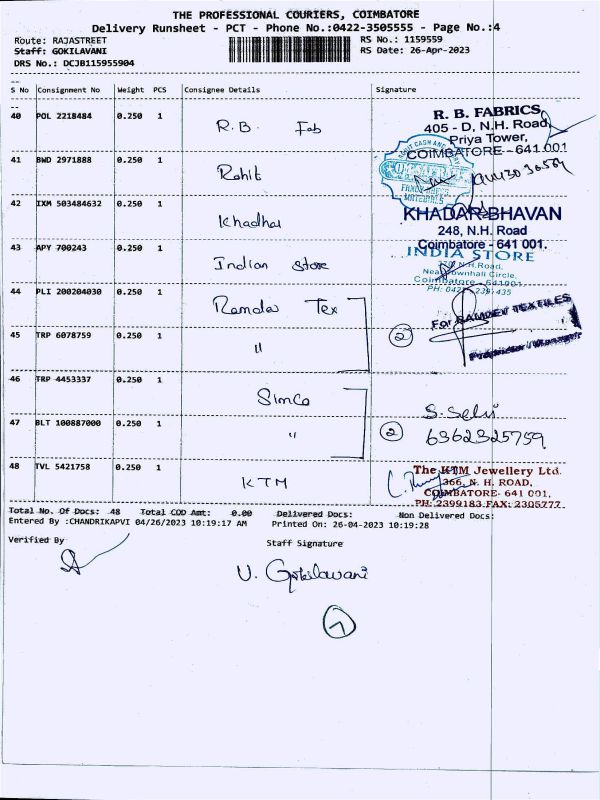 THE PROFESSIONAL COURIERS, COIMBATORE
Delivery Runsheet - PCT - Phone No.:0422-3505555 - Page No.:4
Route: RAJASTREET RS No.: 1159559
Staff: GOKILAVANI RS Date: 26-Apr-2023
DRS No.: DCJB115955904
S No Consignment No Weight PCS Consignee Details Signature
40 POL 2218484 0.250 1 R.B. Fab
R. B. FABRICS,
405 - D, N.H. Road,
Priya Tower,
COIMBATORE - 641 001
41 BWD 2971888 0.250 1 Rohit
42 IXM 503484632 0.250 1 Khadhar
KHADAR BHAVAN
248, N.H. Road
Coimbatore - 641 001.
43 APY 700243 0.250 1 Indian Store
INDIA STORE
N.H.Road,
Near Townhall Circle,
Coimbatore - 641001
44 PLI 200204030 0.250 1 Ramdev Tex
For RAMDEV TEXTILES
Proprietor / Manager
45 TRP 6078759 0.250 1 "
2
46 TRP 4453337 0.250 1 Simco
S. Selvi
47 BLT 100887000 0.250 1 "
2 6362325759
48 TVL 5421758 0.250 1 KTM
The KTM Jewellery Ltd.
366, N. H. ROAD,
COIMBATORE- 641 001.
PH: 2399183 FAX: 2395777
Total No. Of Docs: 48 Total COD Amt: 0.00 Delivered Docs: Non Delivered Docs:
Entered By :CHANDRIKAPVI 04/26/2023 10:19:17 AM Printed On: 26-04-2023 10:19:28
Verified By Staff Signature
V. Gokilavani
7